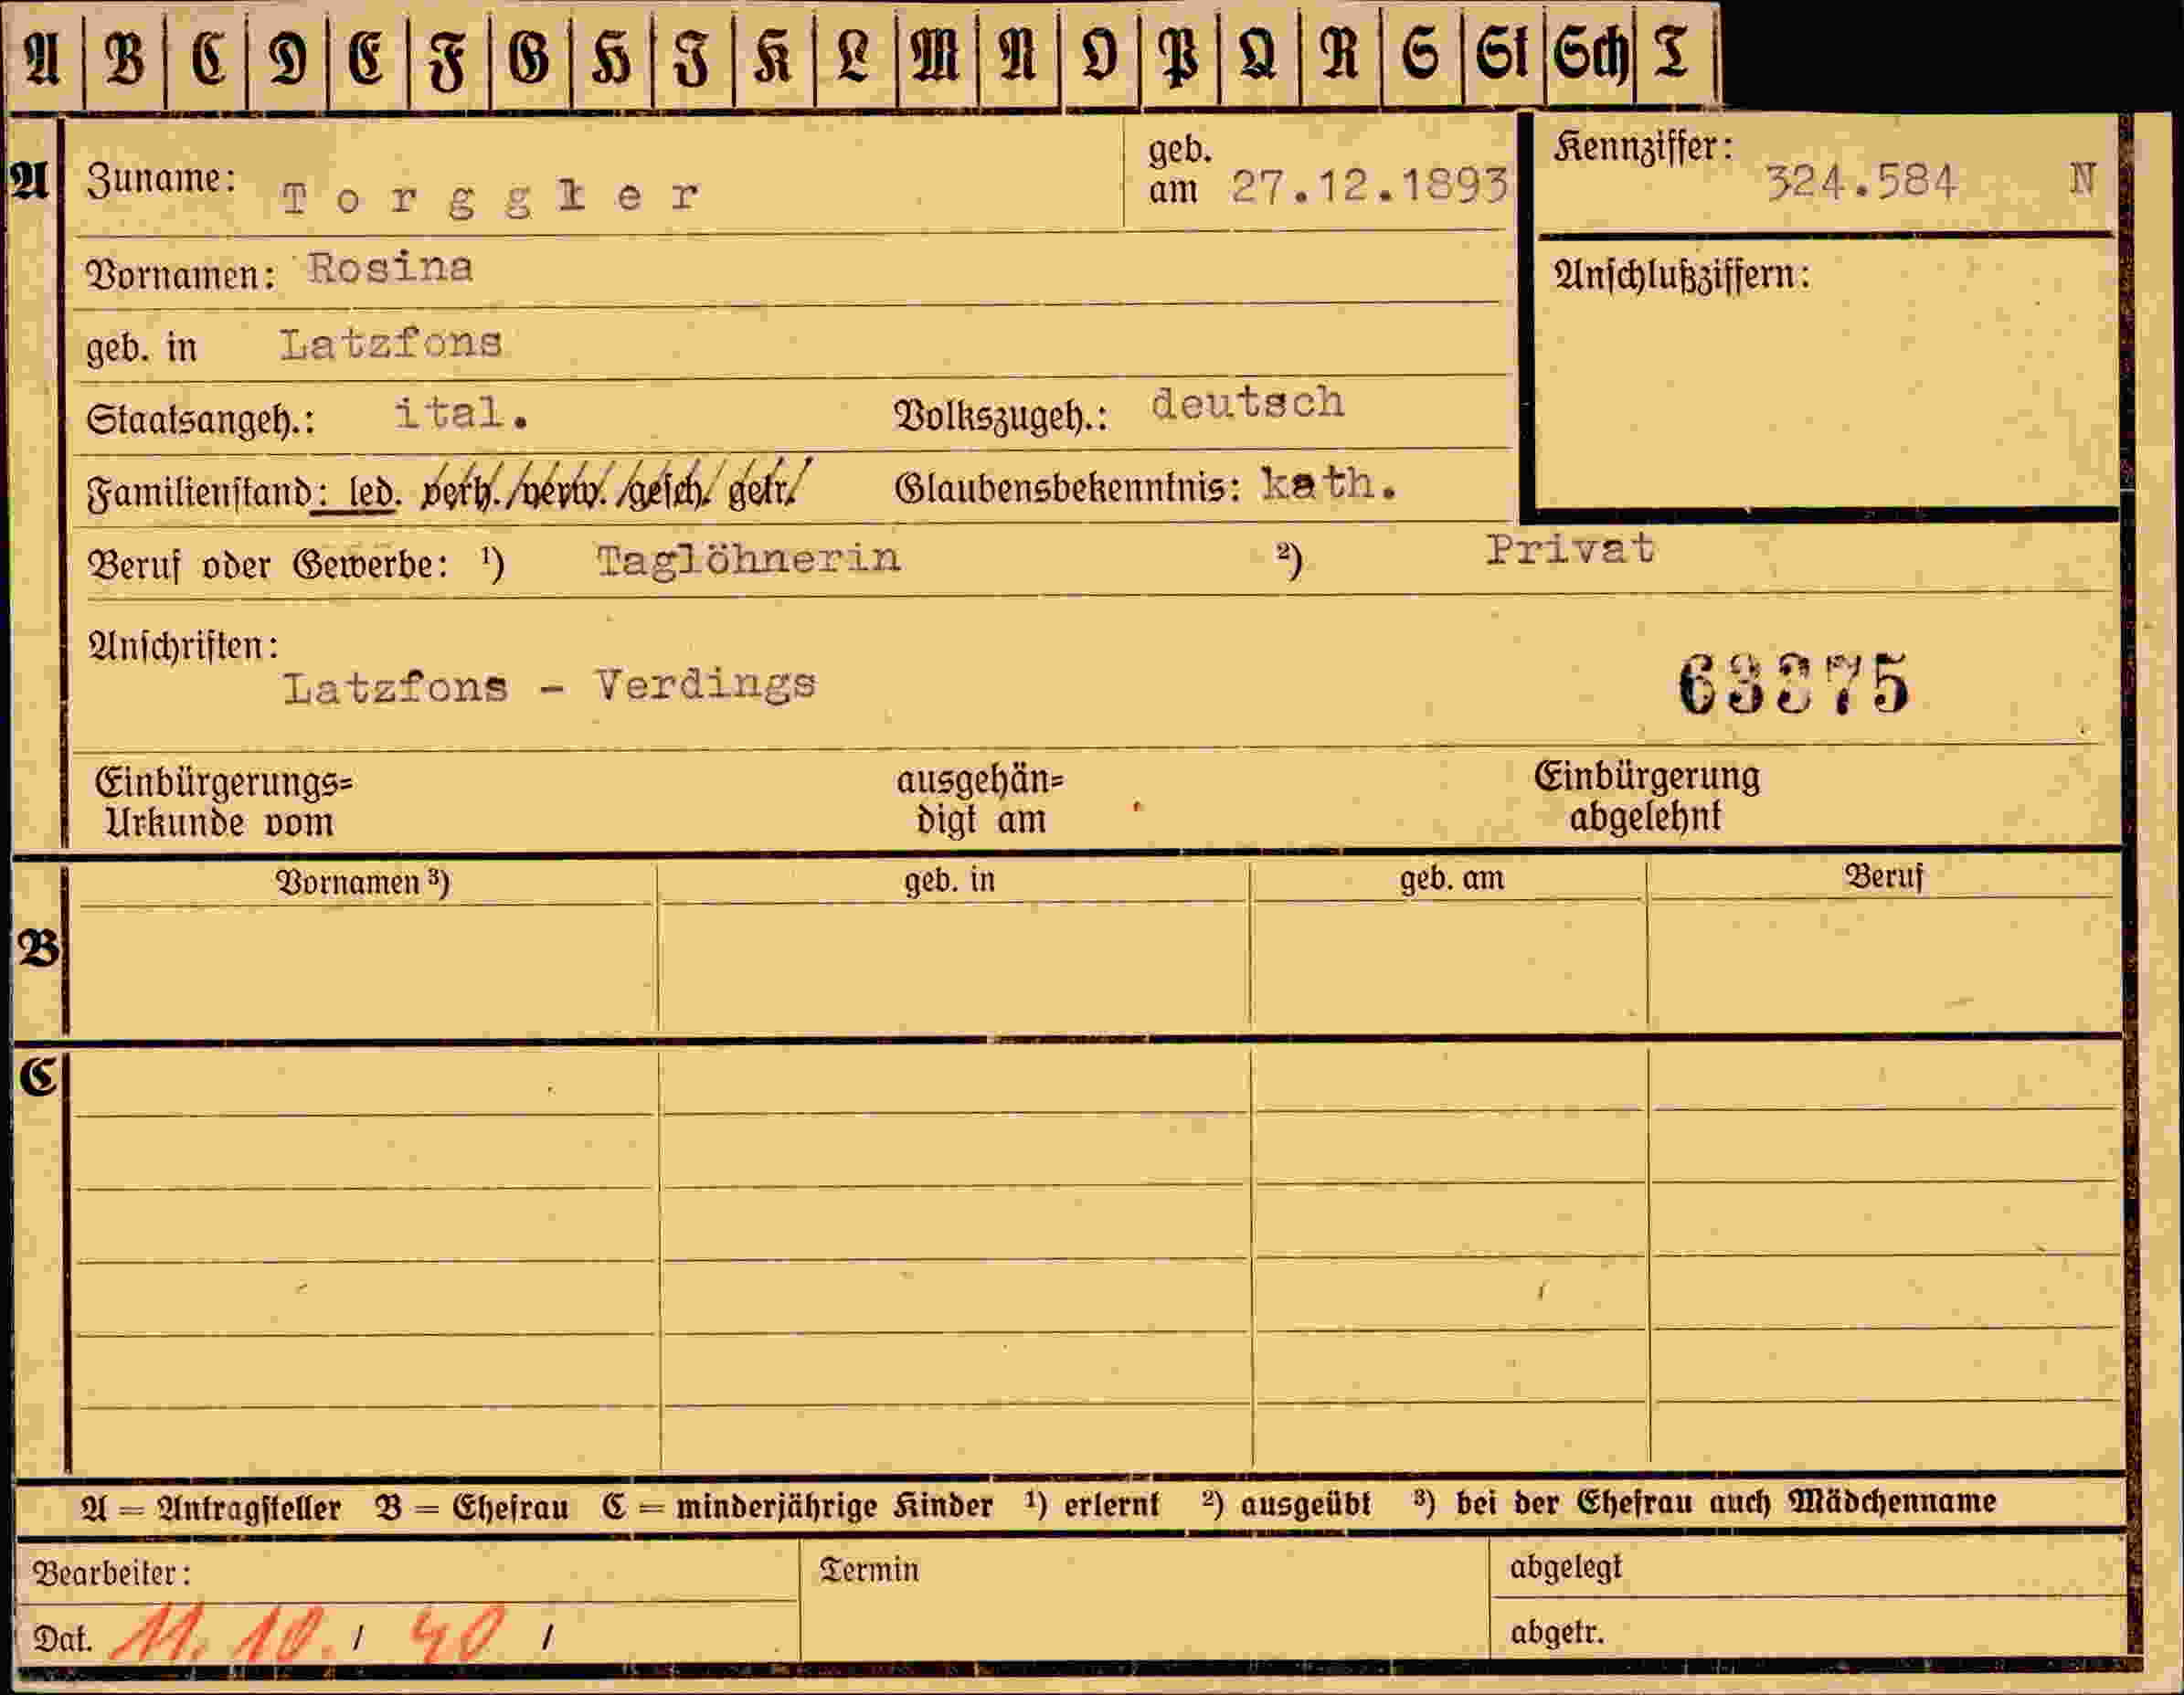 A B C D E F G H I K L M N O P Q R S St Sch T
A Zuname: Torggler geb. am 27.12.1893 Kennziffer: 324.584 N
Vornamen: Rosina Anschlußziffern:
geb. in Latzfons
Staatsangeh.: ital. Volkszugeh.: deutsch
Familienstand: led. verh./verw./gesch./getr./ Glaubensbekenntnis: kath.
Beruf oder Gewerbe: ¹) Taglöhnerin ²) Privat
Anschriften:
Latzfons - Verdings 63375
Einbürgerungs= ausgehän= Einbürgerung
Urkunde vom digt am abgelehnt
Vornamen ³) geb. in geb. am Beruf
B
C
A = Antragsteller B = Ehefrau C = minderjährige Kinder ¹) erlernt ²) ausgeübt ³) bei der Ehefrau auch Mädchenname
Bearbeiter: Termin abgelegt
Dat. 11. 10. / 40 / abgetr.